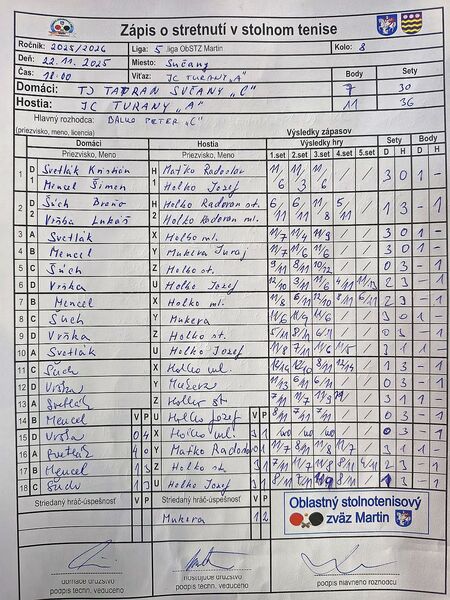 Zápis o stretnutí v stolnom tenise
Ročník: 2025/2026 Liga: 5 .liga ObSTZ Martin Kolo: 8
Deň: 22.11.2025 Miesto: Sučany
Čas: 18:00 Víťaz: TC TURANY „A" Body Sety
Domáci: TJ TATRAN SUČANY „C" 7 30
Hostia: TC TURANY „A" 11 36
Hlavný rozhodca: PETER „C"
(priezvisko, meno, licencia) Výsledky zápasov
Domáci Hostia Výsledky hry Sety Body
Priezvisko, Meno Priezvisko, Meno 1.set 2.set 3.set 4.set 5.set D H D H
1 D1 Svetlák Kristián H1 Maťko Radoslav 11/ 11/ 11/ / / 3 0 1 -
Mencel Šimon Holko Jozef 6 3 6
2 D2 Šuch H2 Holko Radovan st. 6/ 8/ 11/ 5/ / 1 3 - 1
Vrška Lukáš Holko Radovan ml. 11 11 8 11
3 A Svetlák X Holko ml. 11/7 11/4 11/9 / / 3 0 1 -
4 B Mencel Y Mukera Juraj 11/7 11/6 11/6 / / 3 0 1 -
5 C Šuch Z Holko st. 9/11 8/11 10/12 / / 0 3 - 1
6 D Vrška U Holko Jozef 12/10 3/11 11/6 4/11 11/13 2 3 - 1
7 B Mencel X Holko ml. 11/8 6/11 12/10 8/11 6/11 2 3 - 1
8 C Šuch Y Mukera 11/6 11/9 11/6 / / 3 0 1 -
9 D Vrška Z Holko st. 5/11 8/11 6/11 / / 0 3 - 1
10 A Svetlák U Holko Jozef 11/8 7/11 11/6 11/5 / 3 1 1 -
11 C Šuch X Holko ml. / 1 3 - 1
12 D Vrška Y Mukera 11/13 6/11 6/11 / / 0 3 - 1
13 A Svetlák Z Holko st. 7/11 11/7 11/9 / 3 1 1 -
14 B Mencel V P U Holko Jozef V P 8/11 7/11 7/11 / / 0 3 - 1
15 D Vrška 0 4 X Holko ml. 3 1 / / 0 3 - 1
16 A Svetlák 4 0 Y Maťko Radoslav 0 1 7/11 11/8 11/8 11/7 / 3 1 1 -
17 B Mencel 1 3 Z Holko st. 3 1 7/11 11/7 11/8 8/11 4/11 2 3 - 1
18 C Šuch 1 3 U Holko Jozef 3 1 8/11 / / 3 - 1
Striedaný hráč-úspešnosť V P Striedaný hráč-úspešnosť V P
Mukera 1 2
Oblastný stolnotenisový
zväz Martin
domáce družstvo hosťujúce družstvo podpis hlavného rozhodcu
podpis techn. vedúceho podpis techn. vedúceho